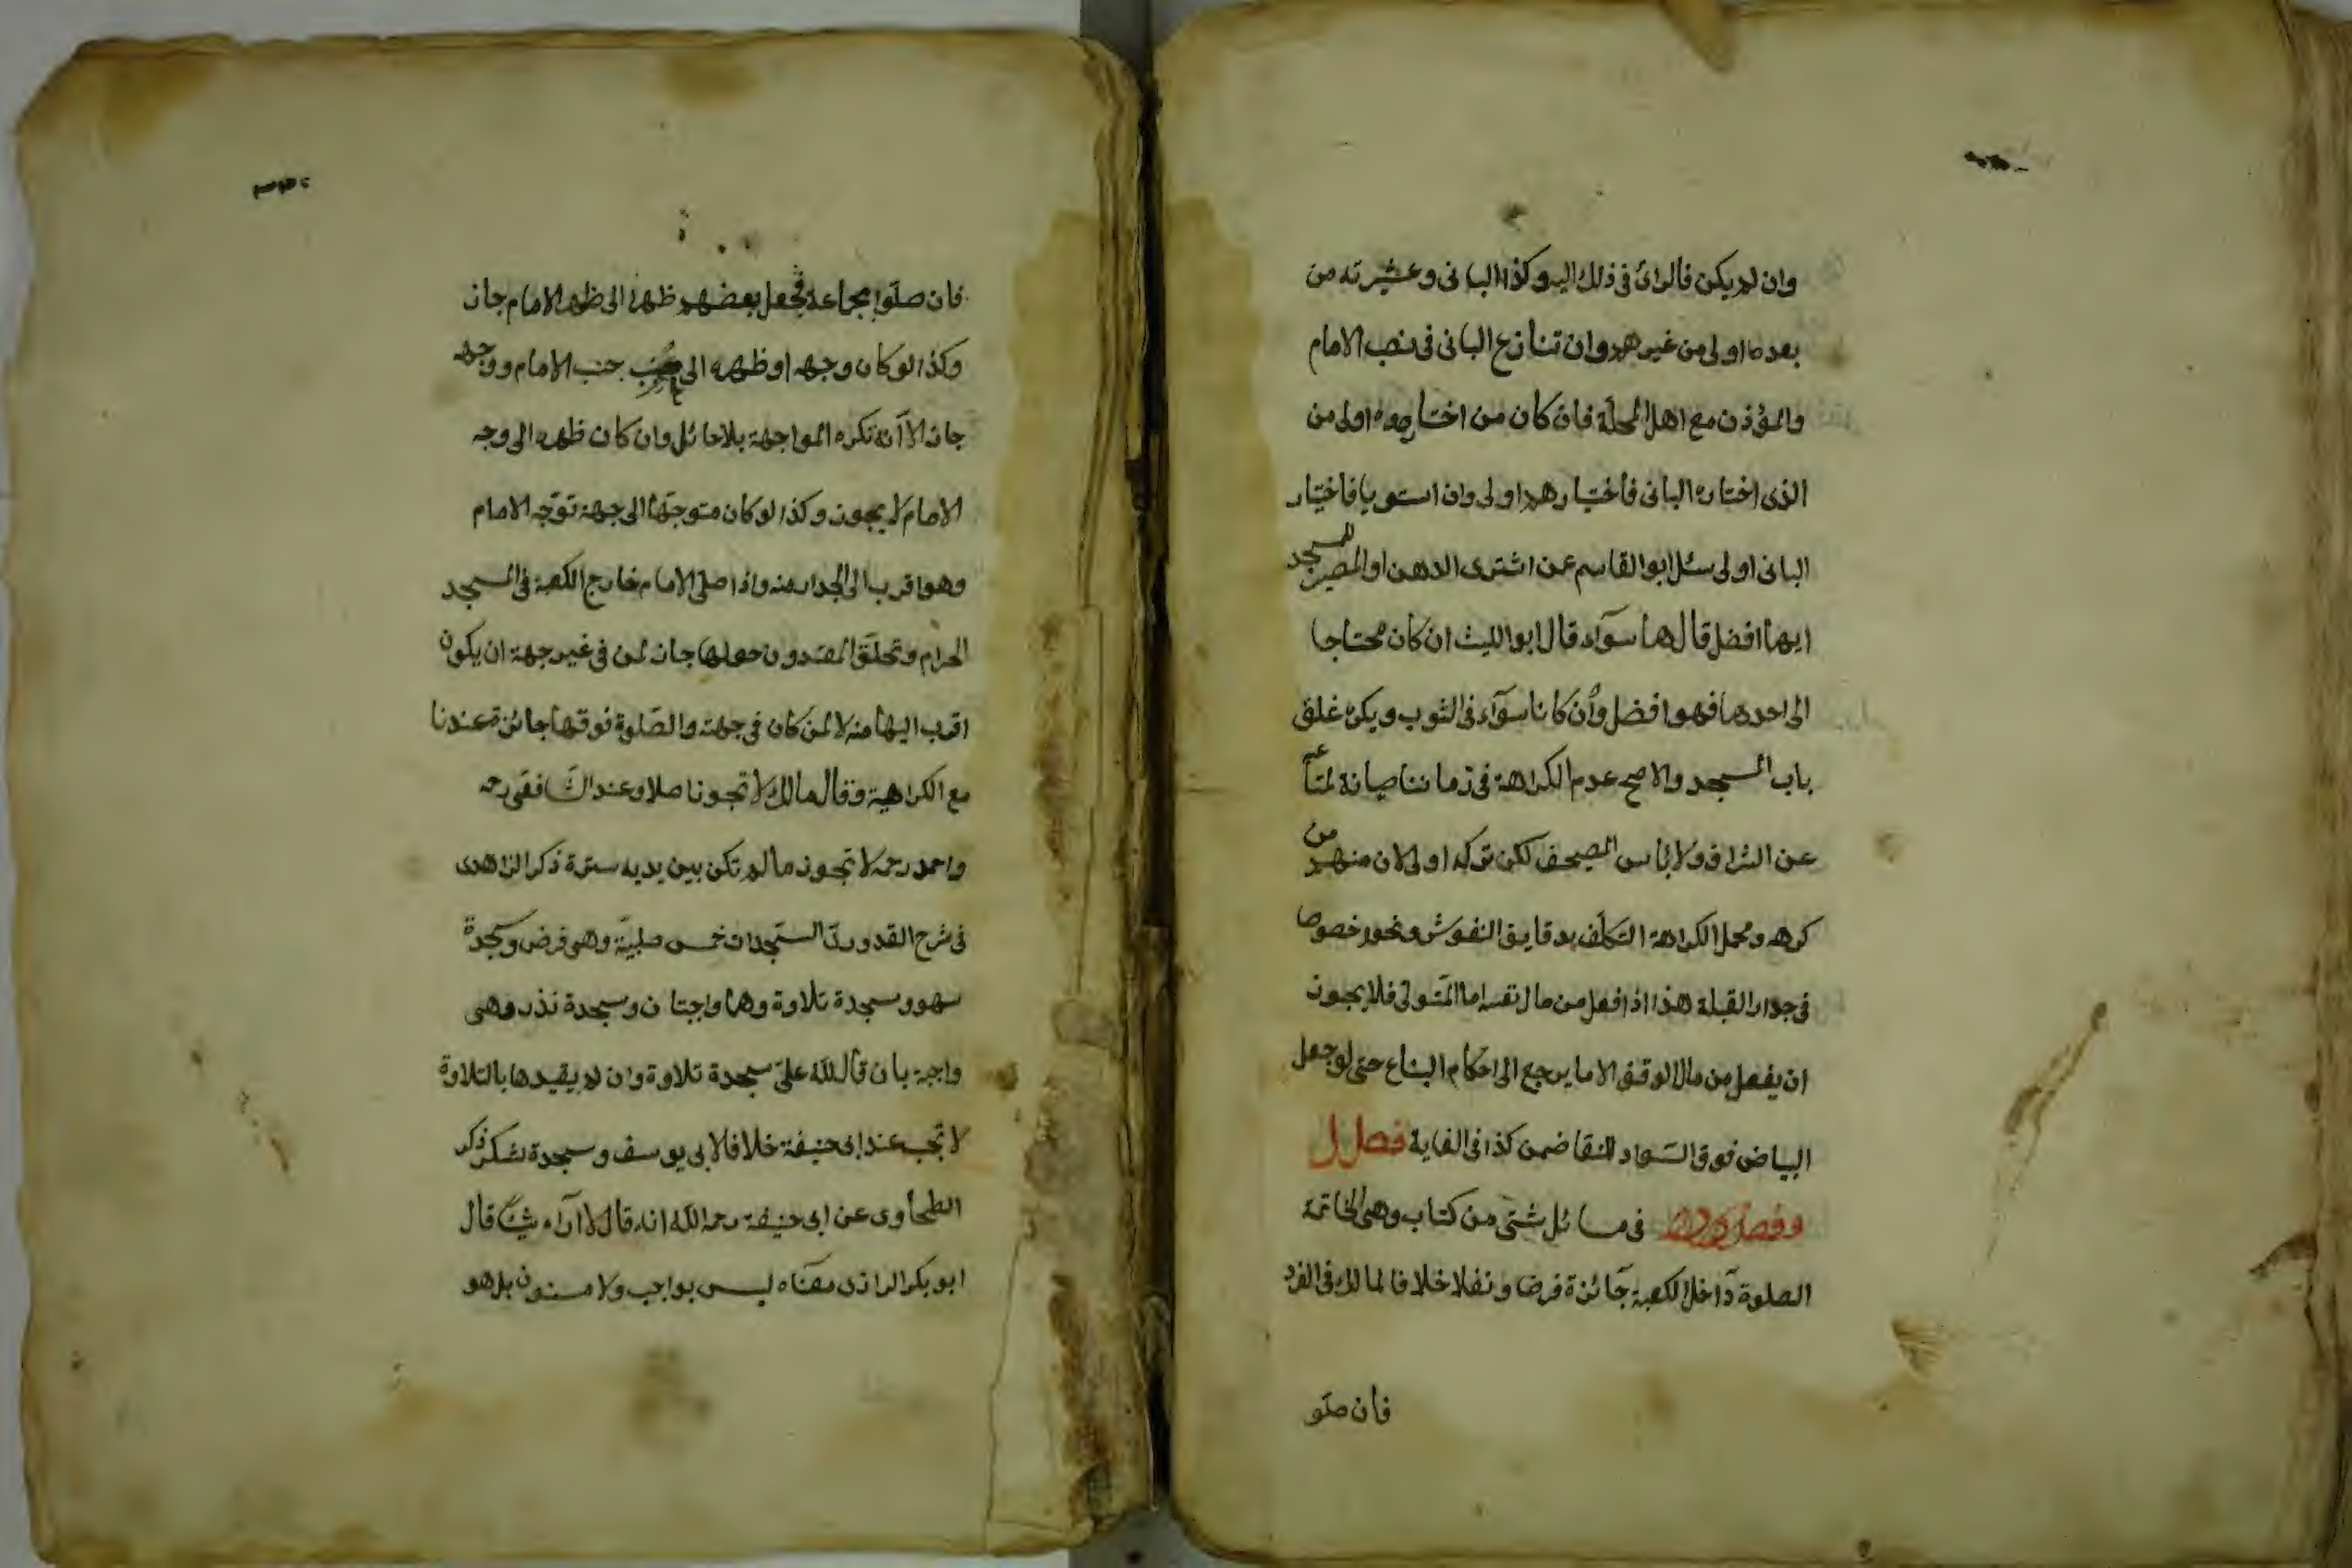 وان لم يكن فالرائ فى ذلك اليه وكذا البانى وعشيرته من
بعده اولى من غيرهم وان تنازع البانى فى نصب الامام
والمؤذن مع اهل المحلة فان كان من اختاروه اولى من
الذى اختاره البانى فاختيارهم اولى وان استويا فاختيار
البانى اولى سئل ابو القاسم عمن اشترى الدهن او الحصير للمسجد
ايهما افضل قال هما سوآء قال ابو الليث ان كان محتاجا
الى احدهما فهو افضل وان كانا سوآء فى الثوب ويكره غلق
باب المسجد والاصح عدم الكراهة فى زماننا صيانة لمتاعه
عن السراق ولا باس المصحف لكن تركه اولى لان منهم من
كرهه ومحمل الكراهة التكلف بدقايق النقوش ونحوه خصوصا
فى جدار القبلة هذا اذا فعل من مال نفسه اما المتولى فلا يجوز
ان يفعل من مال الوقف الا ما يرجع الى احكام البناء حتى لو جعل
البياض فوق السواد للنقا ضمن كذا فى الغاية فصل
فى مسائل شتى من كتاب وهى الخاتمة
الصلوة داخل الكعبة جائزة فرضا ونفلا خلافا لمالك فى الفرد
فان صلو
فان صلوا بجماعة فجعل بعضهم ظهره الى ظهر الامام جاز
وكذا لو كان وجهه او ظهره الى جنب الامام ووجهه
جاز الا انه تكره المواجهة بلا حائل وان كان ظهره الى وجه
الامام لا يجوز وكذا لو كان متوجها الى جهة توجه الامام
وهو اقرب الى الجدار منه واذا صلى الامام خارج الكعبة فى المسجد
الحرام وتحلق المقتدون حولها جاز لمن فى غير جهته ان يكون
اقرب اليها منه لا لمن كان فى جهته والصلوة فوقها جائزة عندنا
مع الكراهية وقال مالك لا تجوز اصلا وعند الشافعى رحمه
واحمد رحمه لا تجوز ما لم تكن بين يديه سترة ذكر الزاهدى
فى شرح القدورى السجدات خمس صلبية وهى فرض وسجدة
سهو وسجدة تلاوة وهما واجبتان وسجدة نذر وهى
واجبة بان قال لله على سجدة تلاوة وان لم يقيدها بالتلاوة
لا تجب عند ابى حنيفة خلافا لابى يوسف وسجدة شكر ذكر
الطحاوى عن ابى حنيفة رحمه الله انه قال لا اراه شيئا قال
ابو بكر الرازى معناه ليس بواجب ولا مسنون بل هو